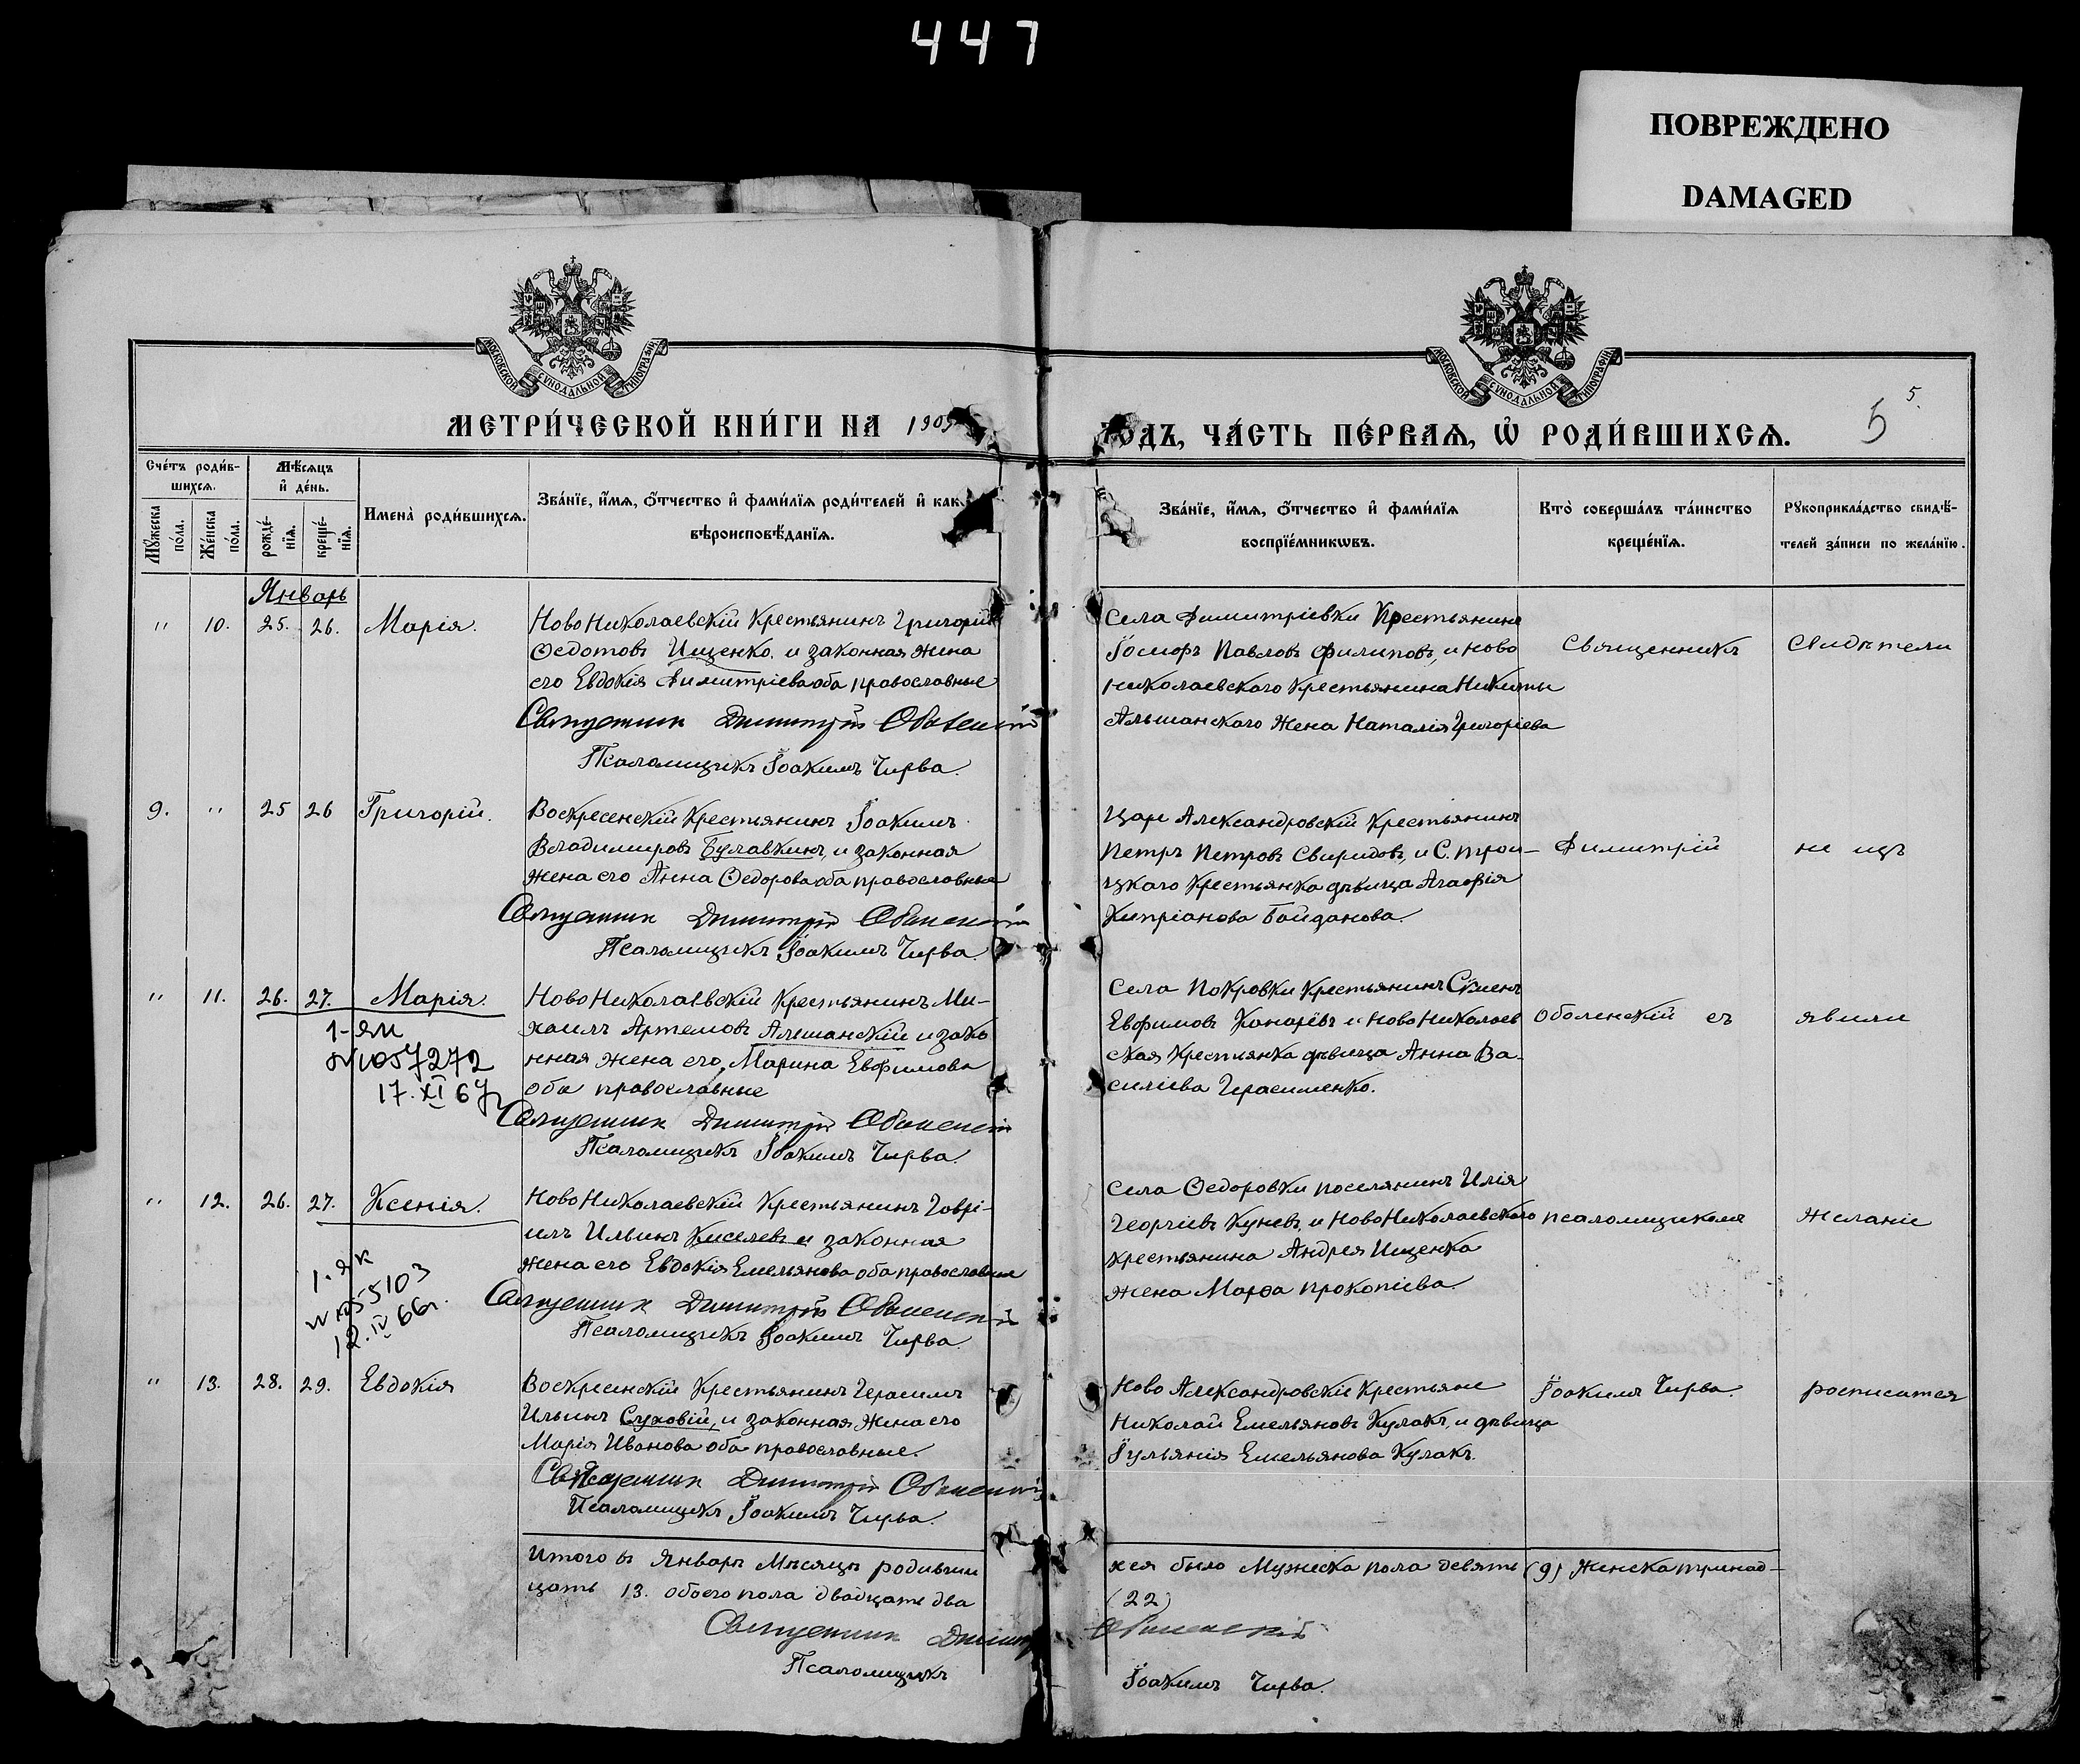 447
ПОВРЕЖДЕНО
DAMAGED
МОСКОВСКОЙ СѴНОДАЛЬНОЙ ТИПОГРАФІИ
МОСКОВСКОЙ СѴНОДАЛЬНОЙ ТИПОГРАФІИ
МЕТРИ́ЧЕСКОЙ КНИ́ГИ НА 1905
ГОДЪ, ЧА́СТЬ ПЕ́РВАѦ, Ѡ҆ РОДИ́ВШИХСѦ.
5.
5
Сче́тъ роди́в-
шихсѧ.
Мѣ́сѧцъ
и҆ де́нь.
Мꙋ́жеска по́ла.
Же́нска по́ла.
рожде́-нїѧ.
креще́-нїѧ.
Имена̀ роди́вшихсѧ.
Зва́нїе, и҆́мѧ, о҆́тчество и҆ фами́лїѧ роди́телей и҆ как
вѣроисповѣ́данїѧ.
Зва́нїе, и҆́мѧ, о҆́тчество и҆ фами́лїѧ
воспрїе́мникѡвъ.
Кто̀ соверша́лъ та́инство
креще́нїѧ.
Рꙋкоприкла́дство свидѣ́-
телей за́писи по жела́нїю.
Январь
" 10. 25. 26. Марія.
НовоНиколаевскій Крестьянинъ Григорій
Ѳедотовъ Ищенко. и законная жена
его Евдокія Димитріева оба православные
Священник Димитрій Оболенскій
Псаломщикъ Іоакимъ Чирва.
Села Димитріевки Крестьянинъ
Іосифъ Павловъ Филиповъ, и ново
николаевскаго Крестьянина Никиты
Альшанскаго Жена Наталія Григоріева
Священникъ
Свидѣтели
9. " 25 26 Григорій.
Воскресенскій Крестьянинъ Іоакимъ
Владимировъ Булавкинъ, и законная
жена его Анна Ѳедорова оба православные
Священник Димитрій Оболенскій
Псаломщикъ Іоакимъ Чирва.
Царе Александровскій Крестьянинъ
Петръ Петровъ Свиридовъ, и С. трои-
цкаго Крестьянка дѣвица Агафія
Кипріанова Байданова.
Димитрій
не изъ
" 11. 26. 27. Марія.
1-ЯИ
№1057272
17. XI 67г
НовоНиколаевскій Крестьянинъ Ми-
хаилъ Артемовъ Алшанскій и зако
нная жена его, Марина Евфимова
оба православные
Священник Димитрій Оболенскій
Псаломщикъ Іоакимъ Чирва.
Села Покровки Крестьянинъ Сѵменъ
Евфимовъ Канарёвъ и НовоНиколаев
ская Крестьянка дѣвица Анна Ва-
силіева Герасименко.
Оболенскій съ
явили
" 12. 26. 27. Ксенія.
12. IV 66г.
НовоНиколаевскій Крестьянинъ Гаврі-
илъ Ильинъ Киселевъ и законная
жена его Евдокія Емельянова оба православные
Священник Димитрій Оболенскій
Псаломщикъ Іоакимъ Чирва.
Села Ѳедоровки поселянинъ Илія
Георгіевъ Куневъ, и НовоНиколаевскаго
крестьянина Андрея Ищенка
жена Марѳа прокопіева.
псаломщикомъ
желаніе
" 13. 28. 29. Евдокія
Воскресенскій Крестьянинъ Герасимъ
Ильинъ Суховій, и законная Жена его
Марія Иванова оба православные.
Священник Димитрій Оболенскій
Псаломщикъ Іоакимъ Чирва.
Ново Александровскіе Крестьяне
Николай Емельяновъ Кулакъ, и дѣвица
Іульянія Емельянова Кулакъ.
Іоакимъ Чирва.
росписатся
Итого въ Январѣ Мѣсяцѣ родивши
хся было Мужеска пола девять (9) Женска тринад-
цать 13. обоего пола двадцать два
(22)
Священник Димитрій Оболенскій
Псаломщикъ Іоакимъ Чирва.